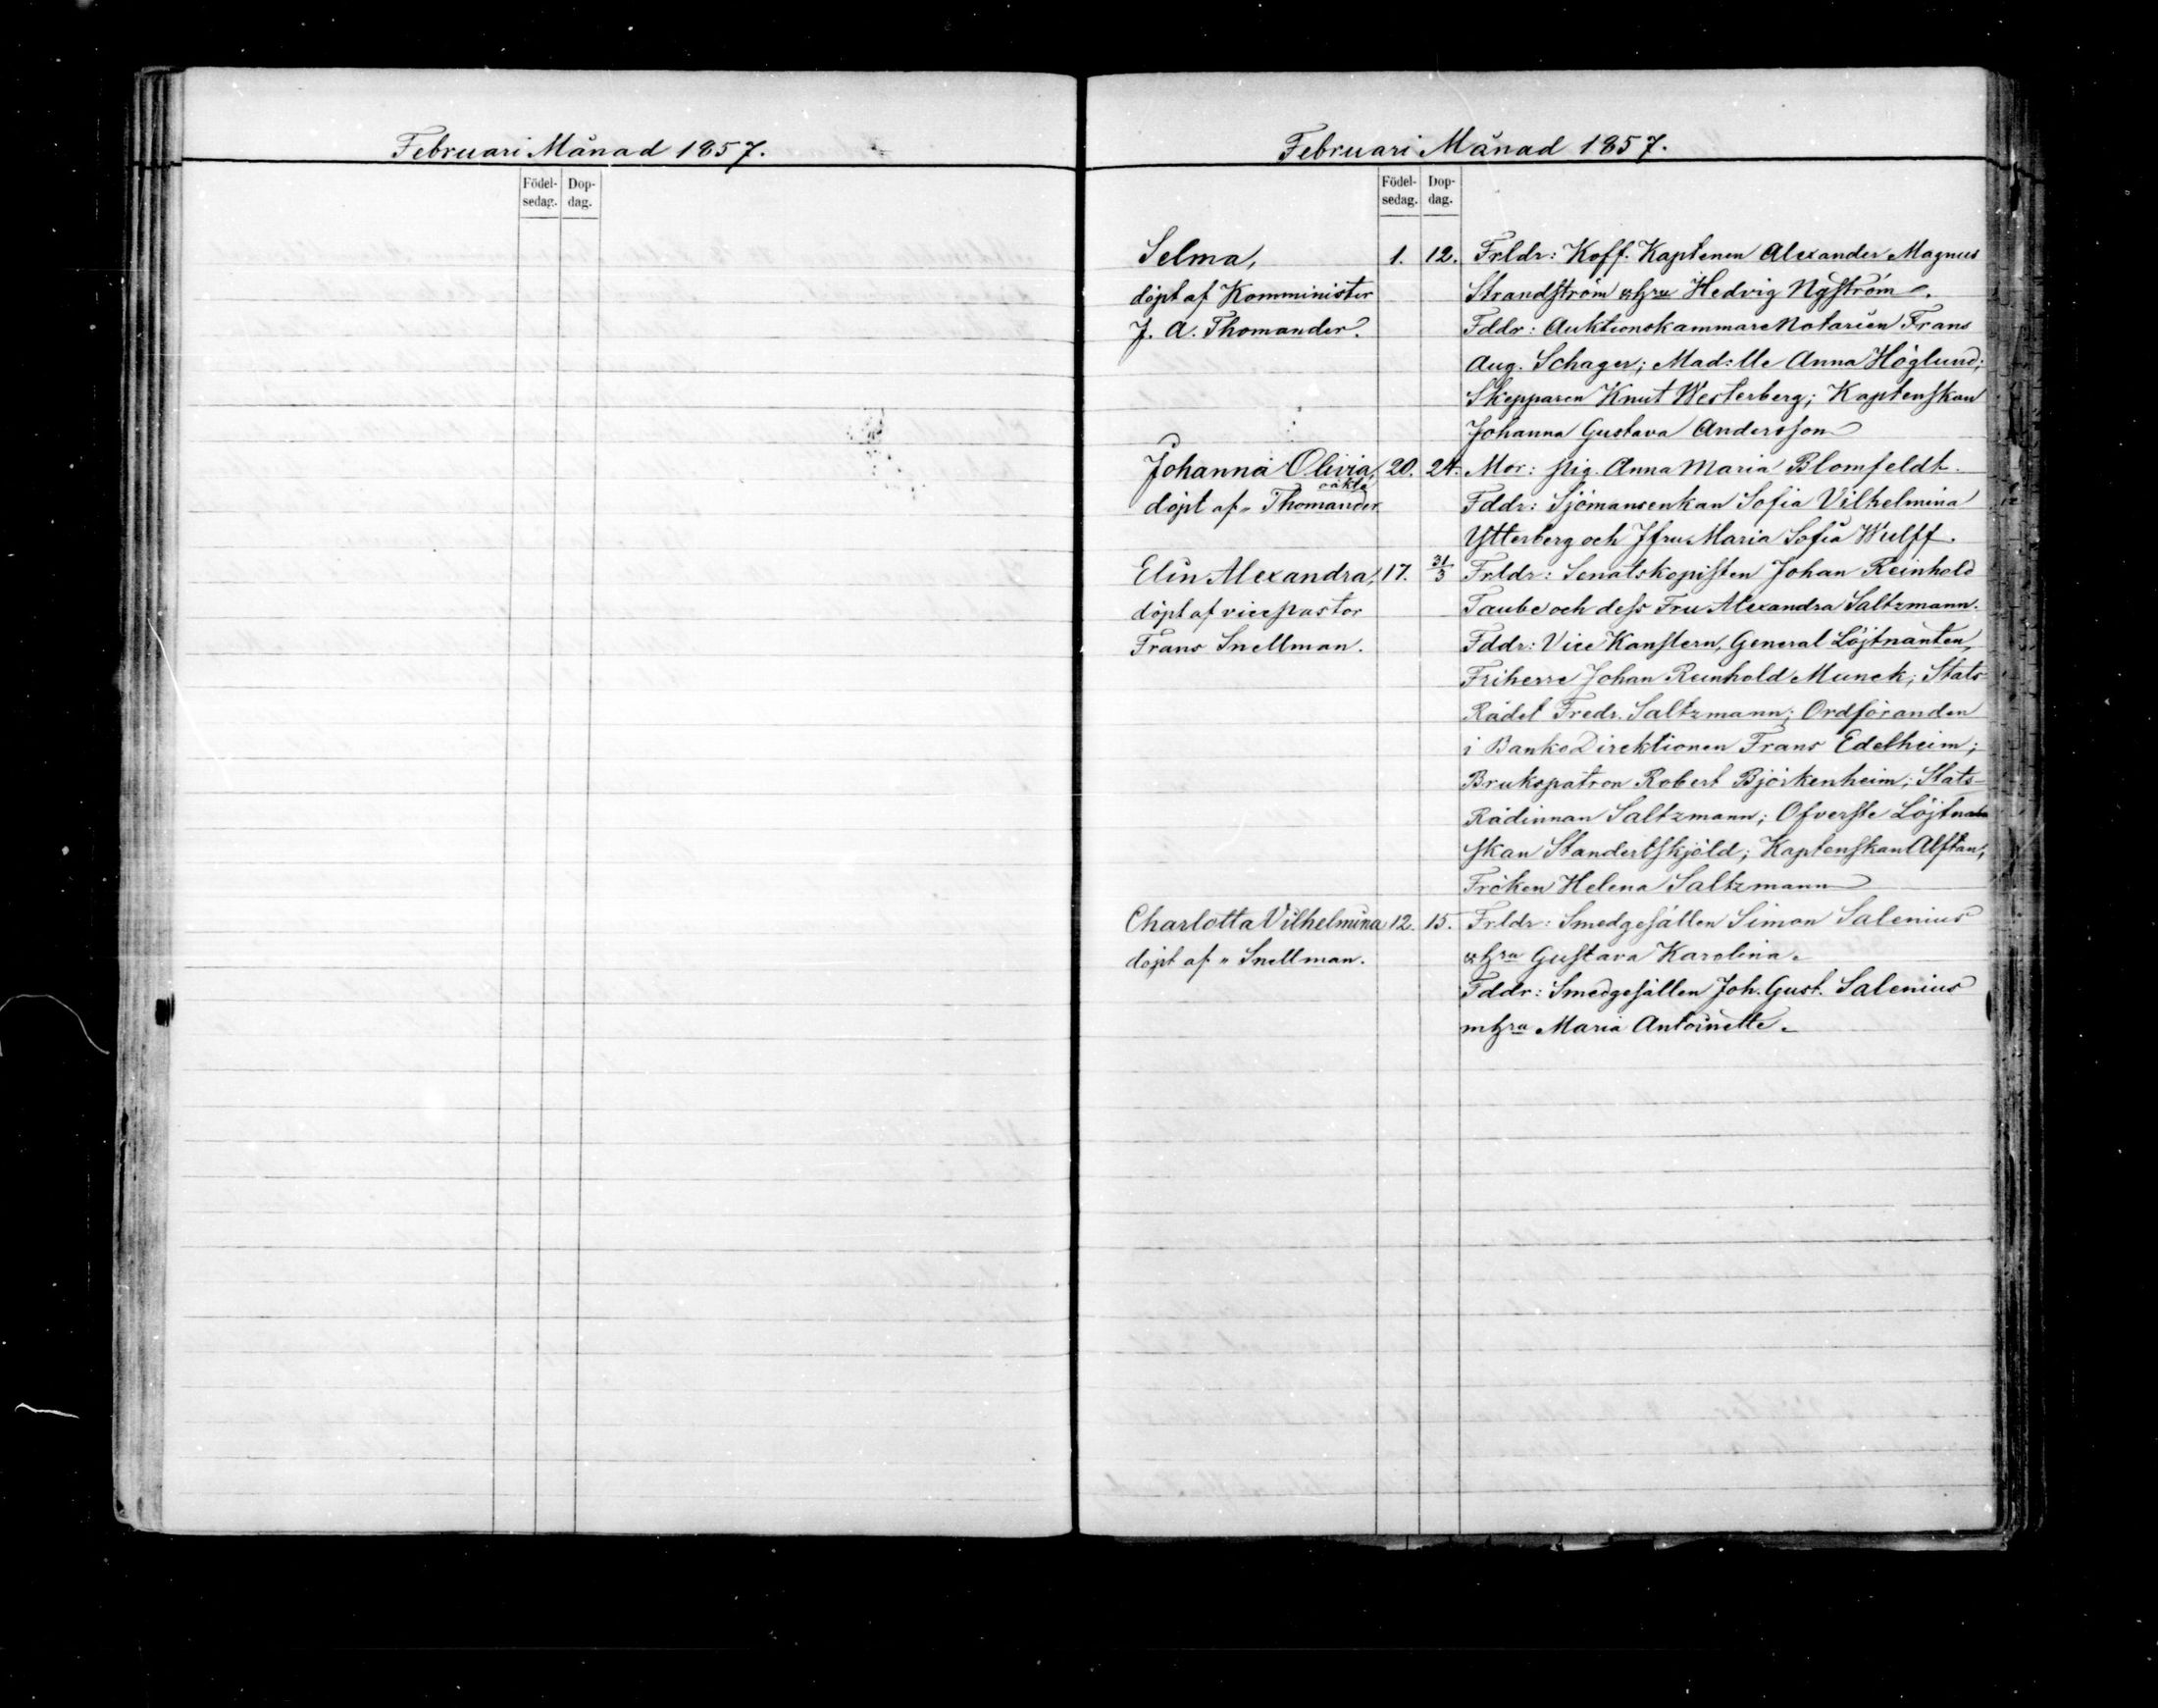 Februari Månad 1857.
Födel-sedag. Dop-dag.
Februari Månad 1857.
Födel-sedag. Dop-dag.
Selma, 1. 12. Frldr: Koff. Kaptenen Alexander Magnus
döpt af Komminister Strandström Hedvig Nyström.
J. A. Thomander. Fddr: Auktionskammare Notarien Frans
Aug. Schager; Mad:lle Anna Höglund;
Skepparen Knut Westerberg; Kaptenskan
Johanna Gustava Andersson
Johanna Olivia, 20. 24. Mor: pig. Anna Maria Blomfeldt.
oäkta
döpt af " Thomander Fddr: Sjömansenkan Sofia Vilhelmina
Ytterberg och Jfru Maria Sofia Wulff.
Elin Alexandra, 17. 31/3 Frldr: Senatskopisten Johan Reinhold
döpt af vicepastor Taube och dess Fru Alexandra Saltzmann.
Frans Snellman. Fddr: Vice Kanslern, General Löjtnanten,
Friherre Johan Reinhold Munck; Stats-
Rådet Fredr. Saltzmann; Ordföranden
i Banko Direktionen Frans Edelheim;
Brukspatron Robert Björkenheim; Stats-
Rådinnan Saltzmann; Ofverste Löjtnants
skan Standertskjöld; Kaptenskan Alftan;
Fröken Helena Saltzmann
Charlotta Vilhelmina 12. 15. Frldr: Smedgesällen Simon Salenius
döpt af " Snellman. Gustava Karolina.
Fddr: Smedgesällen Joh. Gust. Salenius
Maria Antoinette.